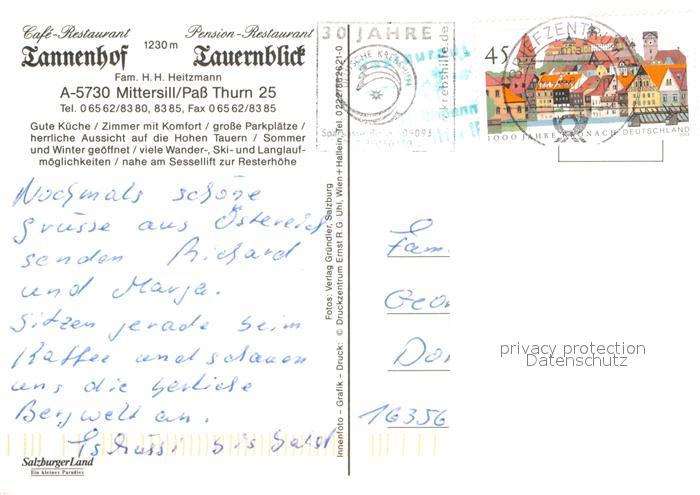 Café-Restaurant Pension-Restaurant
Tannenhof 1230 m Tauernblick
Fam. H. H. Heitzmann
A-5730 Mittersill/Paß Thurn 25
Tel. 0 65 62/83 80, 83 85, Fax 0 65 62/83 85
Gute Küche / Zimmer mit Komfort / große Parkplätze /
herrliche Aussicht auf die Hohen Tauern / Sommer
und Winter geöffnet / viele Wander-, Ski- und Langlauf-
möglichkeiten / nahe am Sessellift zur Resterhöhe
Nochmals schöne
grüsse aus Östereich
senden Richard
und Marga.
Sitzen gerade beim
Kaffee und schauen
uns die herliche
Bergwelt an.
Tschüss bis bald
SalzburgerLand
Ein kleines Paradies
Fotos: Verlag Gründler, Salzburg
Innenfoto – Grafik – Druck: © Druckzentrum Ernst R. G. Uhl, Wien + Hallein, Tel. 0 222/862621-0
30 JAHRE
DEUTSCHE KREBSHILFE
krebshilfe.de
BRIEFZENTRUM
45
1000 JAHRE KRONACH DEUTSCHLAND
Fam.
Geor
Dor
16356
privacy protection
Datenschutz